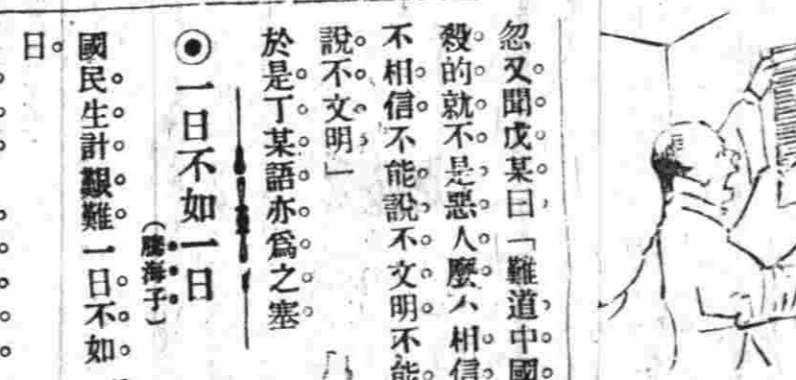 忽又聞戊某曰「難道中國
殺的就不是惡人麼人相信
不相信不能說不文明不能
說不文明」
於是丁某語亦爲之塞
◉一日不如一日
(騰海子)
國民生計艱難一日不如
日